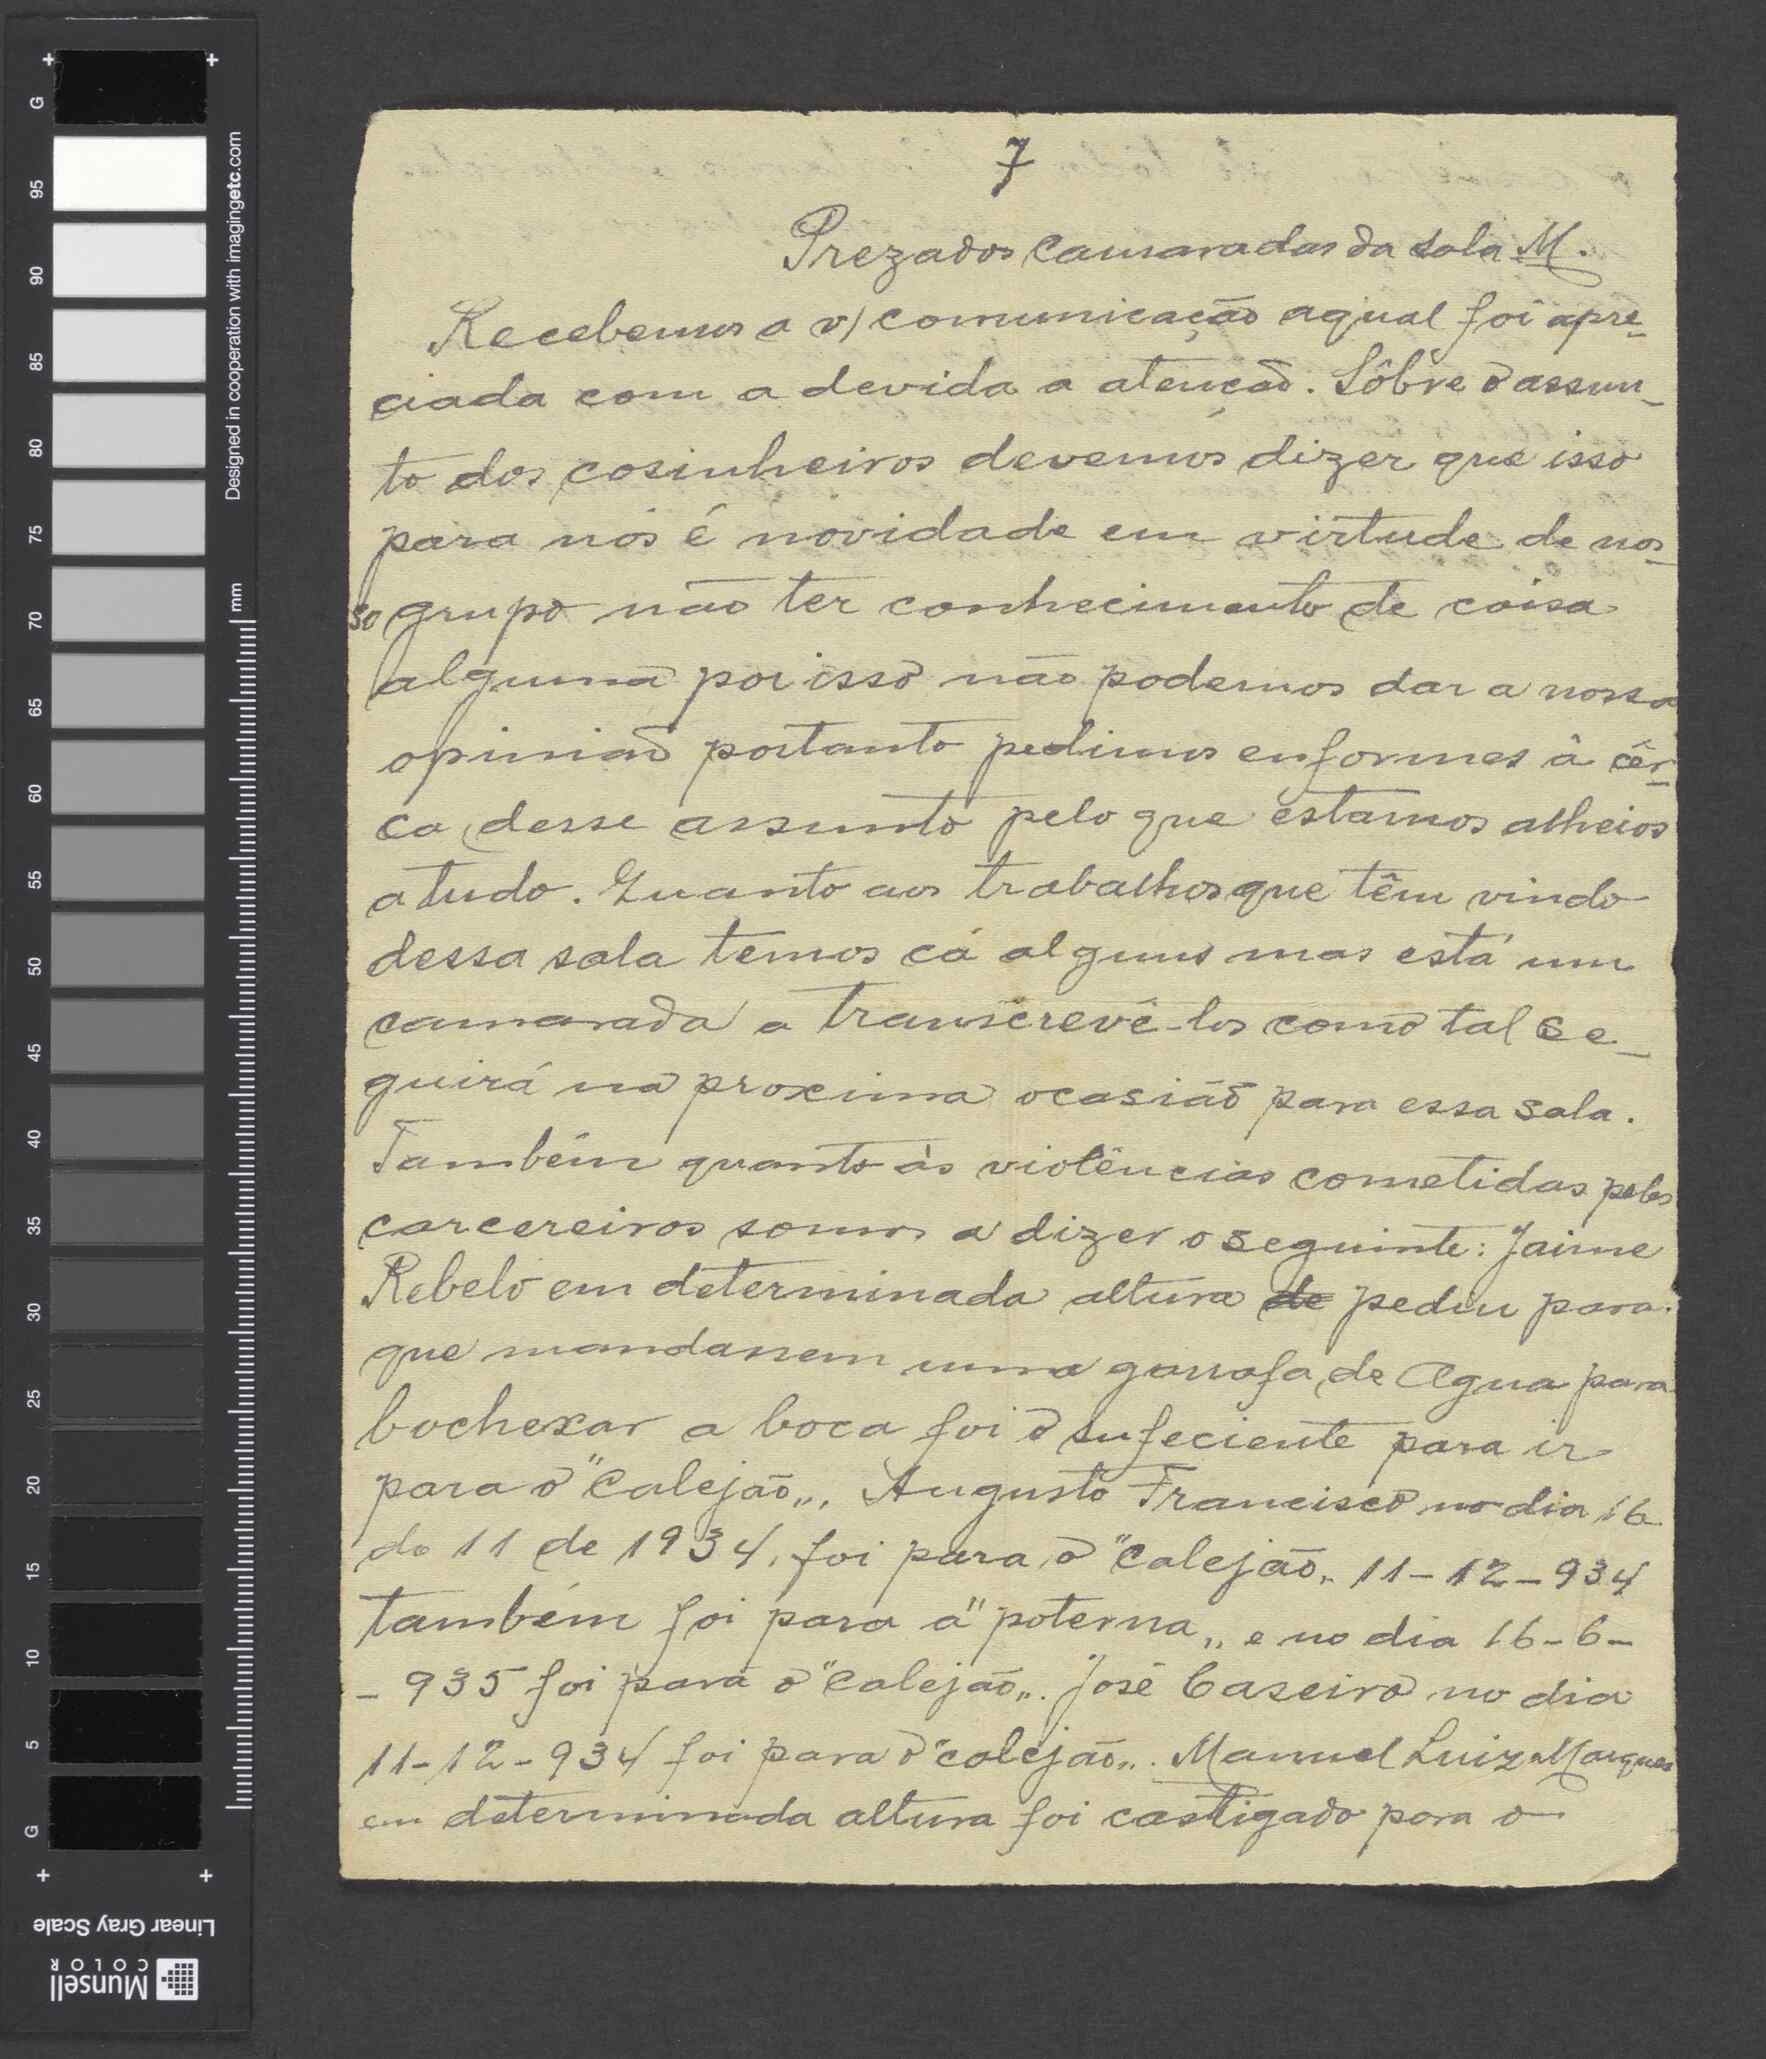 7
Prezados Camaradas da sala M.
Recebemos a v/ comunicação aqual foi apre-
ciada com a devida a atenção. Sôbre o assun-
to dos cosinheiros devemos dizer que isso
para nós é novidade em virtude de nos-
so grupo não ter conhecimento de coisa
alguma por isso não podemos dar a nossa
opinião portanto pedimos enformes â cêr-
ca desse assunto pelo que estamos alheios
a tudo. Quanto aos trabalhos que têm vindo
dessa sala temos cá alguns mas está um
camarada a transcrevê-los como tal se-
guirá na proxima ocasião para essa sala.
Também quanto às violências cometidas pelos
carcereiros somos a dizer o seguinte: Jaime
Rebelo em determinada altura de pediu para
que mandassem uma garrafa de Agua para
bochexar a boca foi o sufeciente para ir
para o "Calejão„. Augusto Francisco no dia 16
do 11 de 1934, foi para o "Calejão„ 11-12-934
também foi para a "poterna„ e no dia 16-6-
-935 foi para o "Calejão„. José Caseiro no dia
11-12-934 foi para o "calejão„. Manuel Luiz Marques
em determinada altura foi castigado para o
G 95 90 85 80 75 70 65 60 55 50 45 40 35 30 25 20 15 10 5 G
Designed in cooperation with imagingetc.com
mm
Linear Gray Scale
Munsell
COLOR